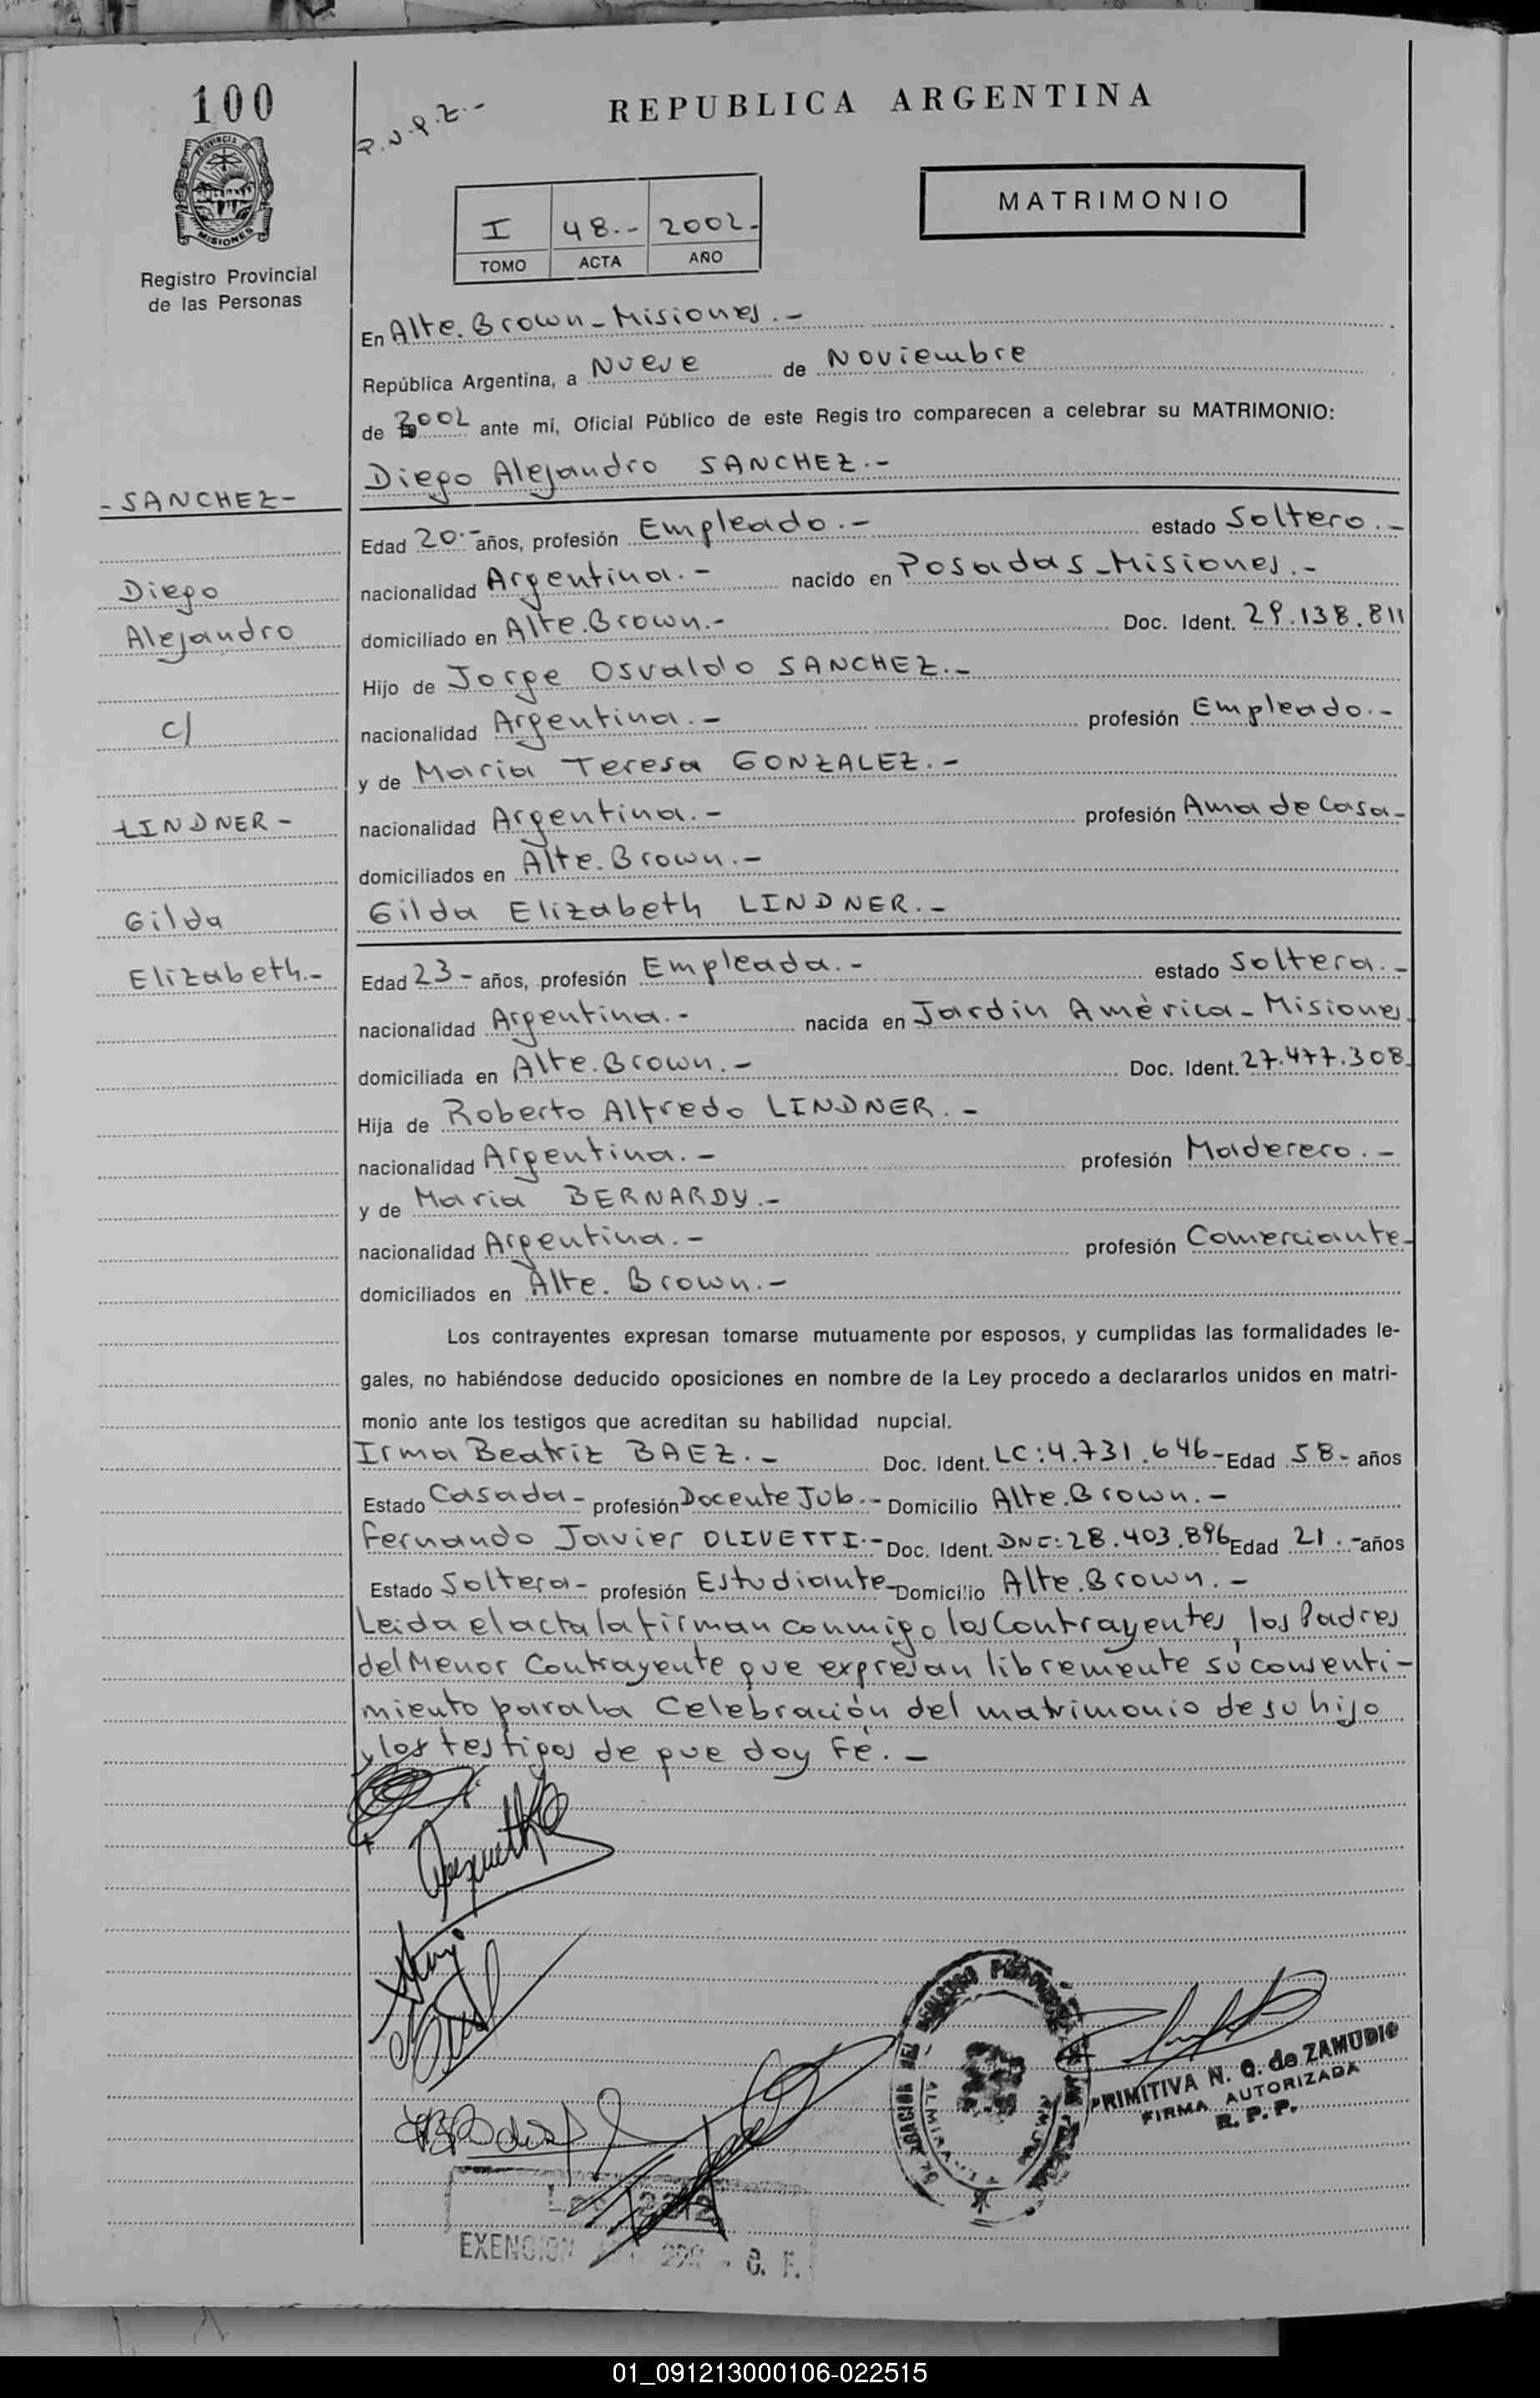 100
REPUBLICA ARGENTINA
PROVINCIA DE
MISIONES
Registro Provincial
de las Personas
MATRIMONIO
I 48.- 2002-
TOMO ACTA AÑO
En Alte. Brown - Misiones.-
República Argentina, a Nueve de Noviembre
de 2002 ante mí, Oficial Público de este Regis tro comparecen a celebrar su MATRIMONIO:
Diego Alejandro SANCHEZ.-
- SANCHEZ -
Edad 20.- años, profesión Empleado.- estado Soltero.-
Diego
nacionalidad Argentina.- nacido en Posadas - Misiones.-
Alejandro
domiciliado en Alte. Brown.- Doc. Ident. 29.138.811
Hijo de Jorge Osvaldo SANCHEZ.-
c/
nacionalidad Argentina.- profesión Empleado.-
y de Maria Teresa GONZALEZ.-
LINDNER -
nacionalidad Argentina.- profesión Ama de Casa -
domiciliados en Alte. Brown.-
Gilda
Gilda Elizabeth LINDNER.-
Elizabeth.-
Edad 23 - años, profesión Empleada.- estado Soltera.-
nacionalidad Argentina.- nacida en Jardin América - Misiones.
domiciliada en Alte. Brown.- Doc. Ident. 27.477.308.
Hija de Roberto Alfredo LINDNER.-
nacionalidad Argentina.- profesión Maderero.-
y de Maria BERNARDY.-
nacionalidad Argentina.- profesión Comerciante -
domiciliados en Alte. Brown.-
Los contrayentes expresan tomarse mutuamente por esposos, y cumplidas las formalidades le-
gales, no habiéndose deducido oposiciones en nombre de la Ley procedo a declararlos unidos en matri-
monio ante los testigos que acreditan su habilidad nupcial.
Irma Beatriz BAEZ.- Doc. Ident. LC: 4.731.646 - Edad 58 - años
Estado Casada - profesión Docente Jub.- Domicilio Alte. Brown.-
Fernando Javier OLIVETTI.- Doc. Ident. DNI: 28.403.896 Edad 21.- años
Estado Soltera - profesión Estudiante - Domicilio Alte. Brown.-
Leida el acta la firman conmigo los Contrayentes, los Padres
del Menor Contrayente que expresan libremente su consenti-
miento para la Celebración del matrimonio de su hijo
y los testigos de que doy Fé.-
PRIMITIVA N. G. de ZAMUDIO
FIRMA AUTORIZADA
R. P. P.
EXENCION
01_091213000106-022515